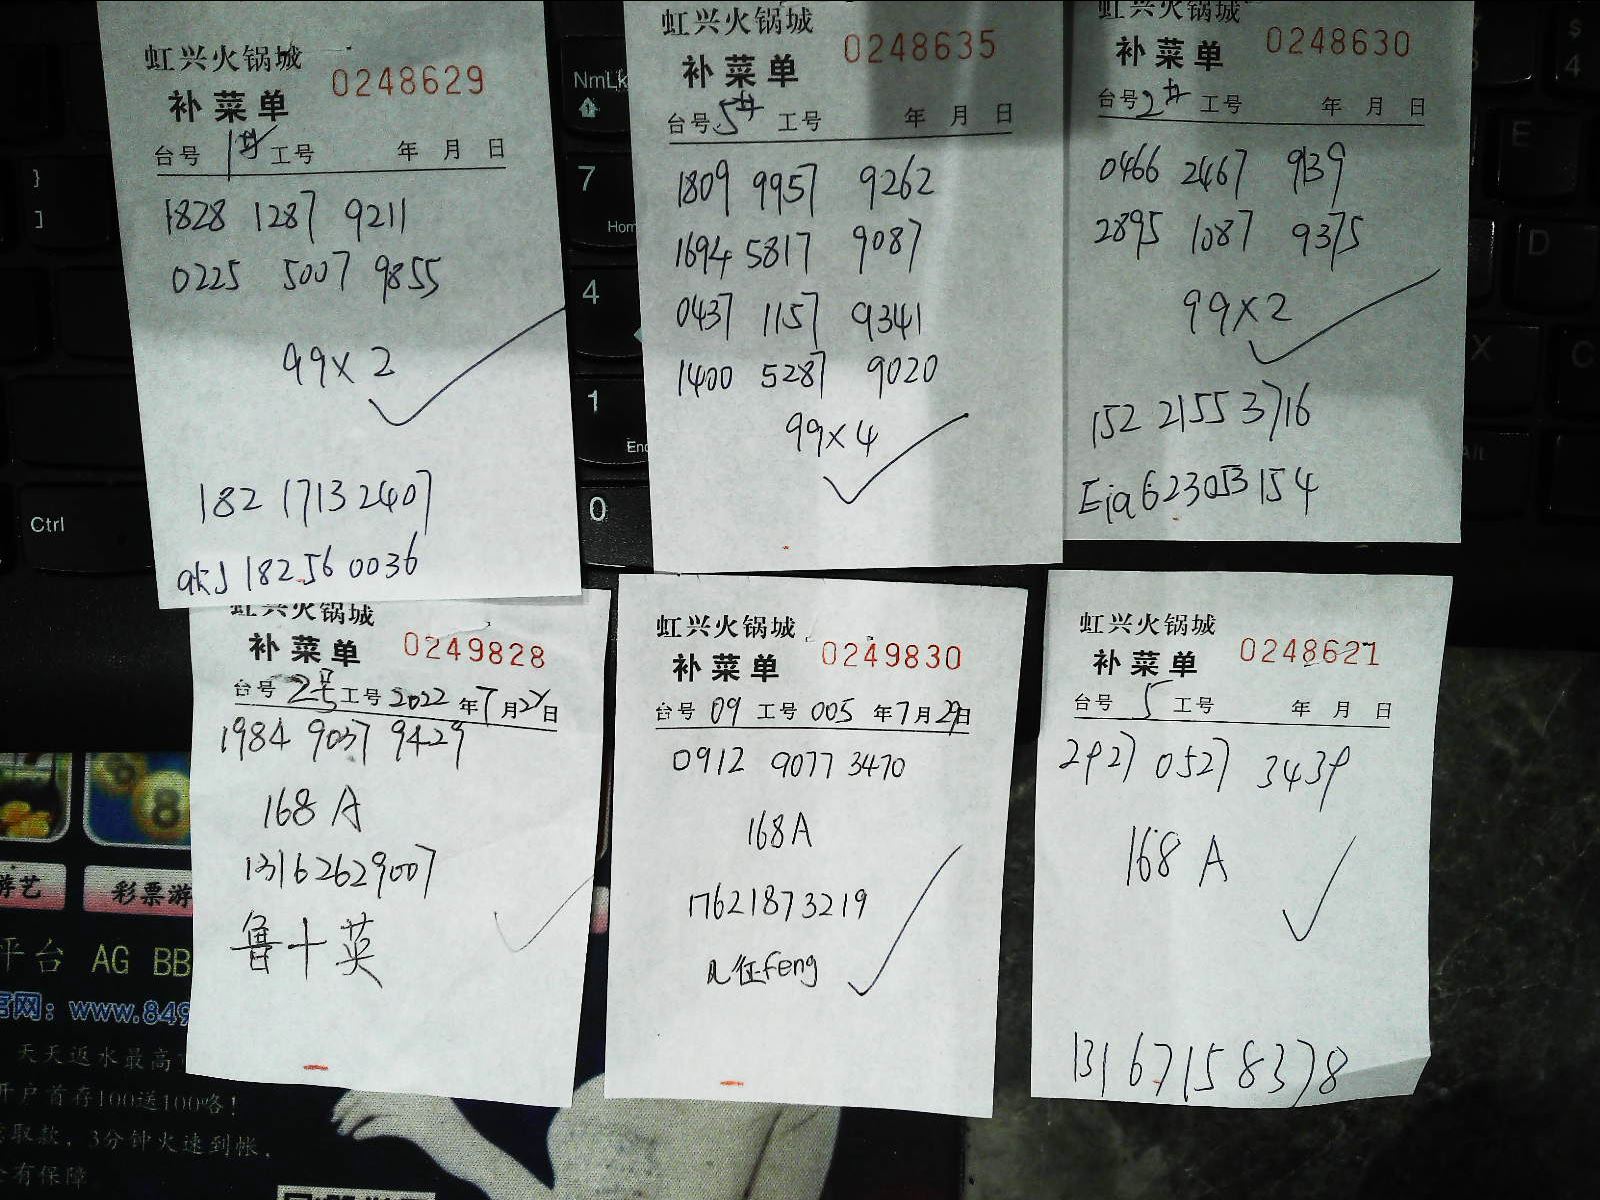 虹兴火锅城
0248629
补菜单
台号 1# 工号 年 月 日
1828 1287 9211
0225 5007 9855
99×2
182 1713 2407
akJ 182 56 0036
虹兴火锅城
0248635
补菜单
台号 5# 工号 年 月 日
1809 9957 9262
1694 5817 9087
0437 1157 9341
1400 5287 9020
99×4
虹兴火锅城
0248630
补菜单
台号 2# 工号 年 月 日
0466 2467 9139
2895 1087 9375
99×2
152 2155 3716
Eia623053154
虹兴火锅城
0249828
补菜单
台号 2号 工号 2022 年 7 月 日
1984 9037 9429
168 A
13162629007
鲁十英
虹兴火锅城
0249830
补菜单
台号 09 工号 005 年 7 月 29 日
0912 9077 3470
168A
17621873219
Feng
虹兴火锅城
0248621
补菜单
台号 5 工号 年 月 日
2927 0527 3439
168 A
13167158378
NmLk
7
Hom
4
1
End
0
Ctrl
}
]
$
4
E
D
X
C
Alt
8
游艺
彩票游
平台 AG BB
官网: www.849
天天返水最高
开户首存100送100咯!
取款, 3分钟火速到帐,
有保障